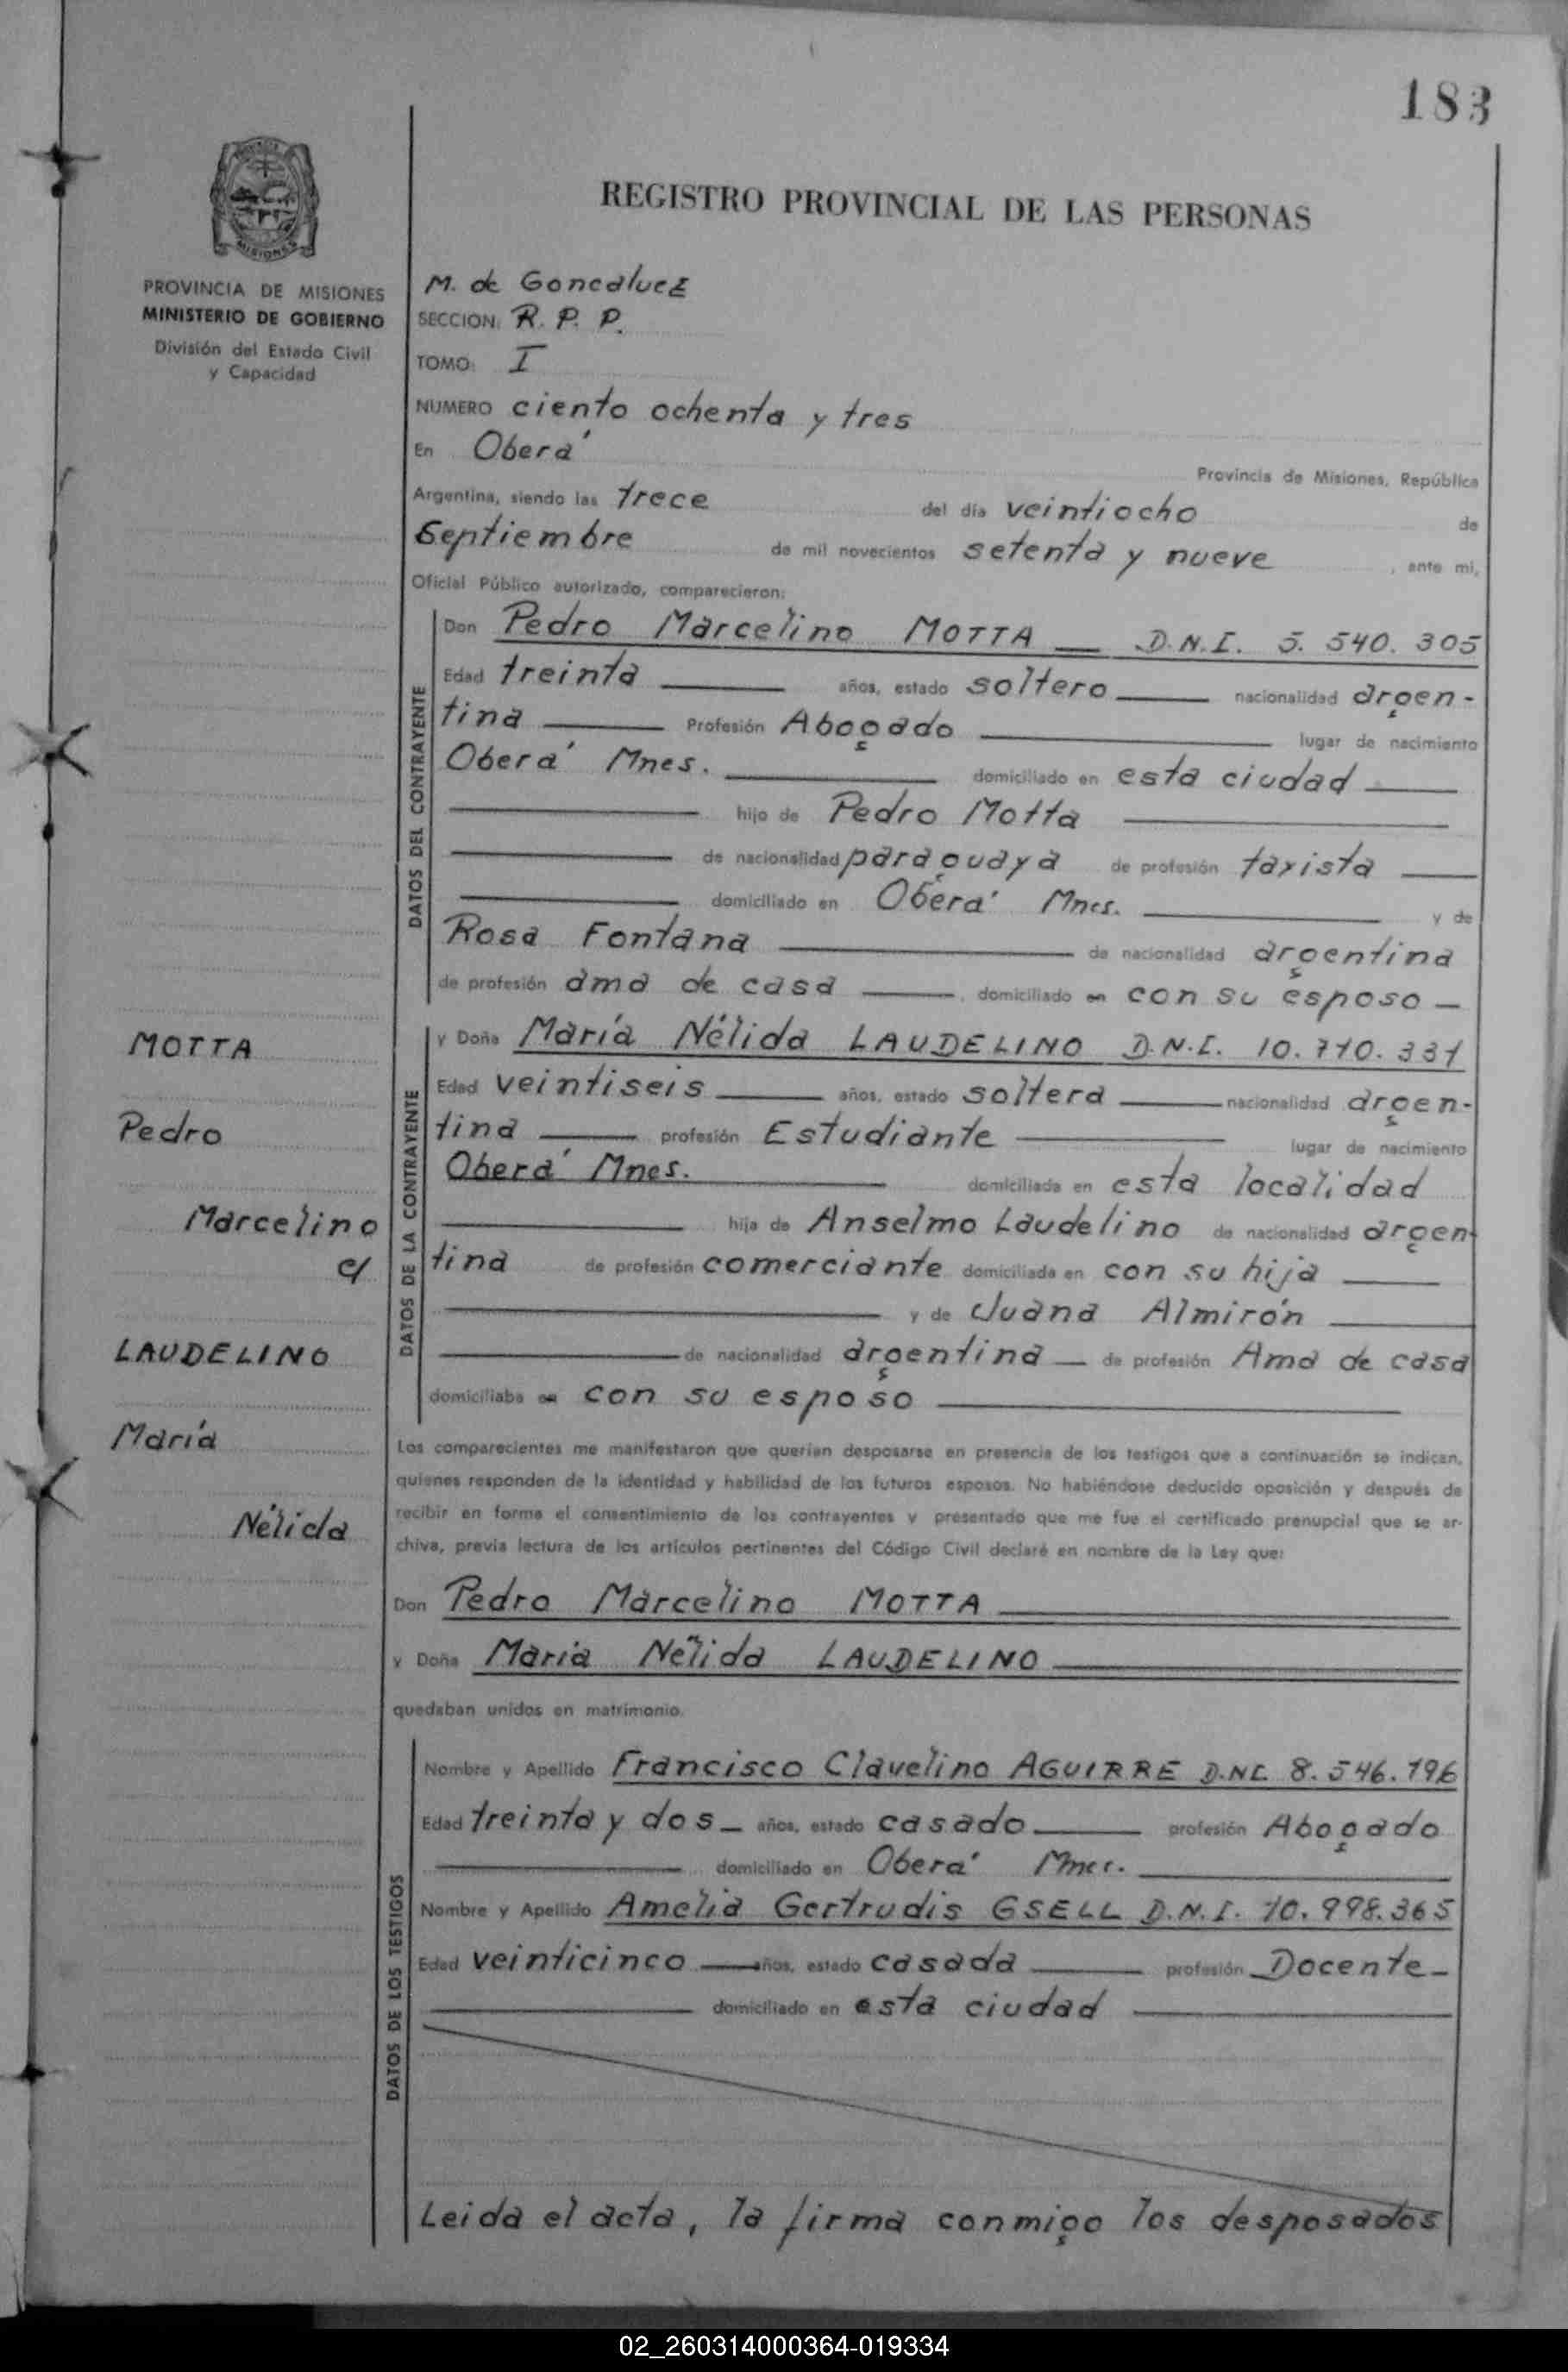 183
REGISTRO PROVINCIAL DE LAS PERSONAS
MISIONES
PROVINCIA DE MISIONES
MINISTERIO DE GOBIERNO
División del Estado Civil
y Capacidad
M. de Goncalvez
SECCION: R. P. P.
TOMO: I
NUMERO ciento ochenta y tres
En Oberá Provincia de Misiones, República
Argentina, siendo las trece del día veintiocho de
Septiembre de mil novecientos setenta y nueve, ante mi,
Oficial Público autorizado, comparecieron:
DATOS DEL CONTRAYENTE
Don Pedro Marcelino MOTTA — D.N.I. 5.540.305
Edad treinta — años, estado soltero — nacionalidad argen-
tina — Profesión Abogado — lugar de nacimiento
Oberá Mnes. — domiciliado en esta ciudad —
— hijo de Pedro Motta —
— de nacionalidad paraguaya de profesión taxista —
— domiciliado en Oberá Mnes. — y de
Rosa Fontana — de nacionalidad argentina
de profesión ama de casa —, domiciliado en con su esposo —
DATOS DE LA CONTRAYENTE
y Doña María Nélida LAUDELINO D.N.I. 10.710.331
Edad veintiseis — años, estado soltera — nacionalidad argen-
tina — profesión Estudiante — lugar de nacimiento
Oberá Mnes. — domiciliada en esta localidad
— hija de Anselmo Laudelino de nacionalidad argen-
tina de profesión comerciante domiciliada en con su hija —
— y de Juana Almirón —
— de nacionalidad argentina — de profesión Ama de casa
domiciliaba en con su esposo —
MOTTA
Pedro
Marcelino
c/
LAUDELINO
María
Nélida
Los comparecientes me manifestaron que querían desposarse en presencia de los testigos que a continuación se indican,
quienes responden de la identidad y habilidad de los futuros esposos. No habiéndose deducido oposición y después de
recibir en forma el consentimiento de los contrayentes y presentado que me fue el certificado prenupcial que se ar-
chiva, previa lectura de los artículos pertinentes del Código Civil declaré en nombre de la Ley que:
Don Pedro Marcelino MOTTA —
y Doña María Nélida LAUDELINO —
quedaban unidos en matrimonio.
DATOS DE LOS TESTIGOS
Nombre y Apellido Francisco Clavelino AGUIRRE D.N.I. 8.546.196
Edad treinta y dos — años, estado casado — profesión Abogado
— domiciliado en Oberá Mnes. —
Nombre y Apellido Amelia Gertrudis GSELL D.N.I. 10.998.365
Edad veinticinco — años, estado casada — profesión Docente —
— domiciliado en esta ciudad —
Leida el acta, la firma conmigo los desposados
02_260314000364-019334